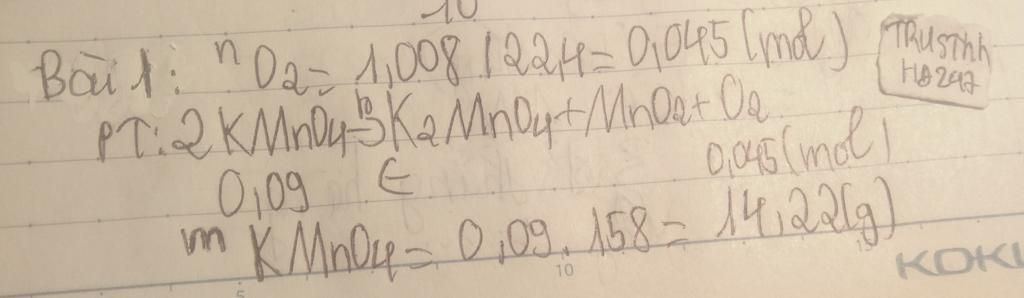 10
Bài 1: nO2 = 1,008 / 22,4 = 0,045 (mol)
TRUSThh
HD247
PT: 2KMnO4 -to> K2MnO4 + MnO2 + O2
0,09 ← 0,045 (mol)
m KMnO4 = 0,09 . 158 = 14,22 (g)
5 10 15
KOKU